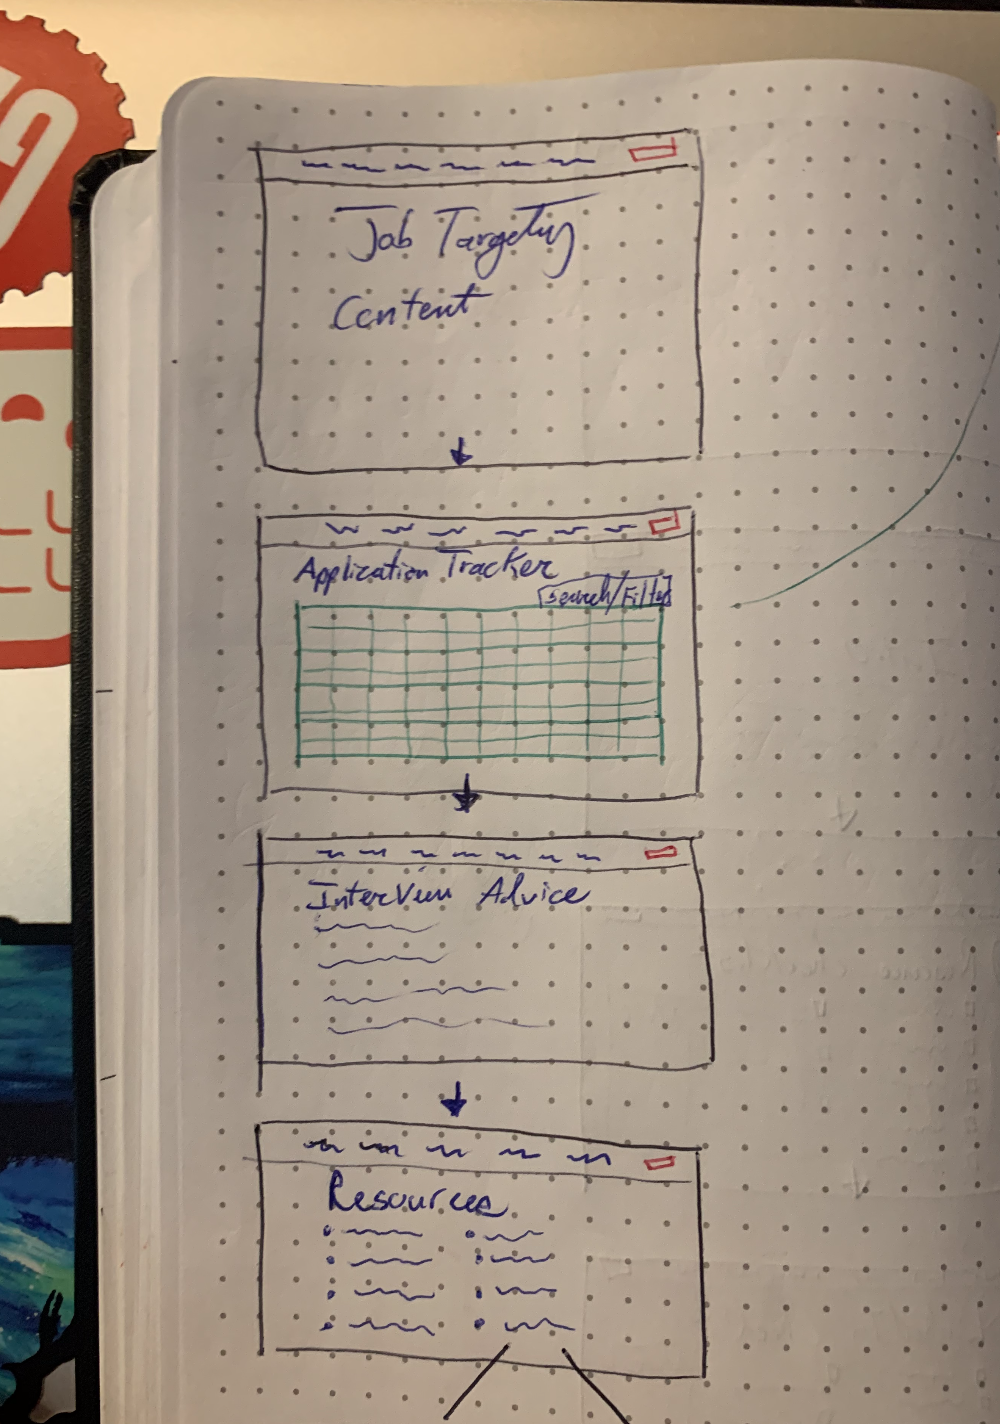 Job Targeting
Content
Application Tracker
Search/Filter
Interview Advice
Resources